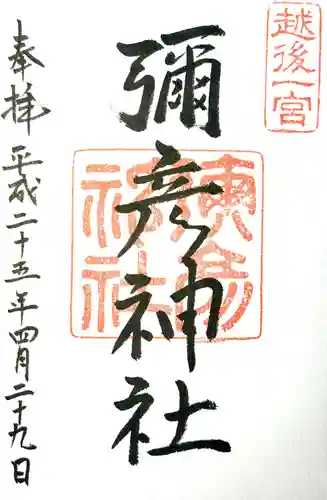 越後一宮
彌彦神社
奉拝 平成二十五年四月二十九日